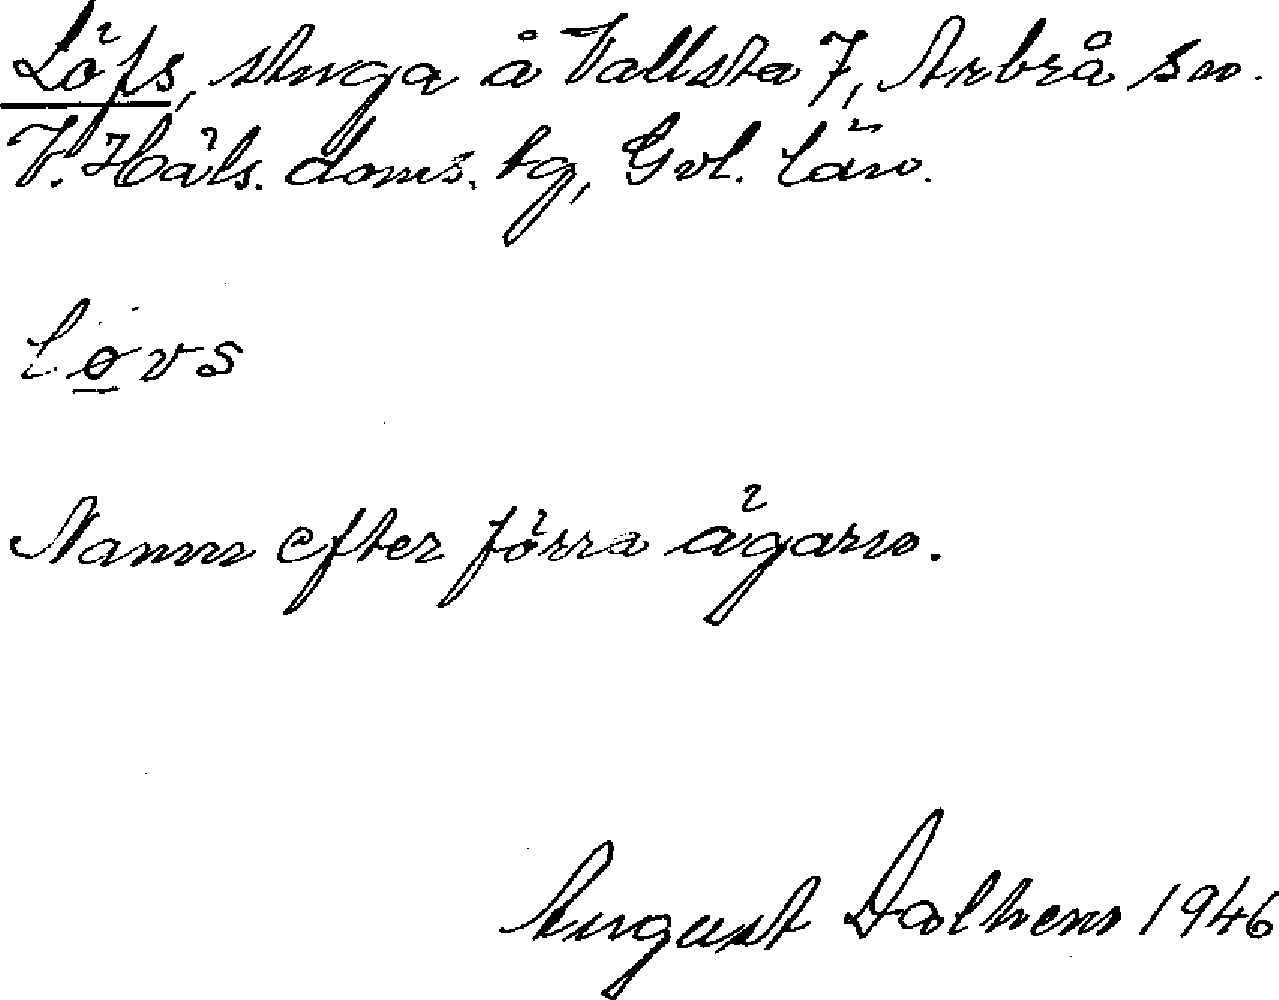 Löfs, stuga å Vallsta 7, Arbrå sn.
V. Häls. doms. tg, Gvl. län.
løvs
Namn efter förra ägarn.
August Dalhem 1946